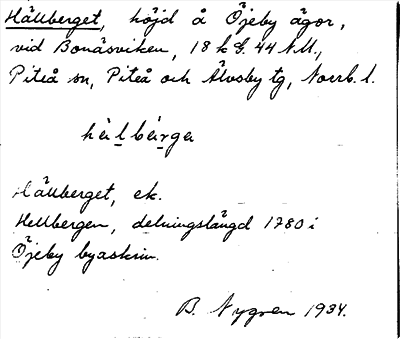 Hällberget, höjd å Öjeby ägor,
vid Bonäsviken, 18 k G. 44 NM.,
Piteå sn, Piteå och Älvsby tg, Norrb. l.
hälbärga
Hällberget, ek.
Hellbergen, delningslängd 1780 i
Öjeby byaskrin.
B. Nygren 1934.